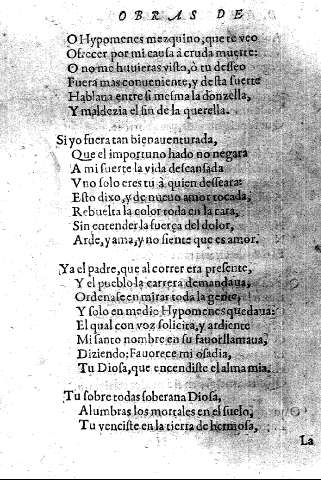 OBRAS DE
O Hypomenes mezquino, que te veo
Ofrecer por mi causa à cruda muerte:
O no me huuieras visto, ò tu desseo
Fuera mas conueniente, y desta suerte
Hablaua entre si mesma la donzella,
Y maldezia el fin de la querella.
Si yo fuera tan bienauenturada,
Que el importuno hado no negara
A mi suerte la vida descansada
Vno solo eres tu à quien desseara:
Esto dixo, y de nueuo amor tocada,
Rebuelta la color toda en la cara,
Sin entender la fuerça del dolor,
Arde, y ama, y no siente que es amor.
Ya el padre, que al correr era presente,
Y el pueblo la carrera demandaua,
Ordenase en mirar toda la gente,
Y solo en medio Hypomenes quedaua:
El qual con voz solicita, y ardiente
Mi santo nombre en su fauor llamaua,
Diziendo: Fauorece mi osadia,
Tu Diosa, que encendiste el alma mia.
Tu sobre todas soberana Diosa,
Alumbras los mortales en el suelo,
Tu venciste en la tierra de hermosa,
La